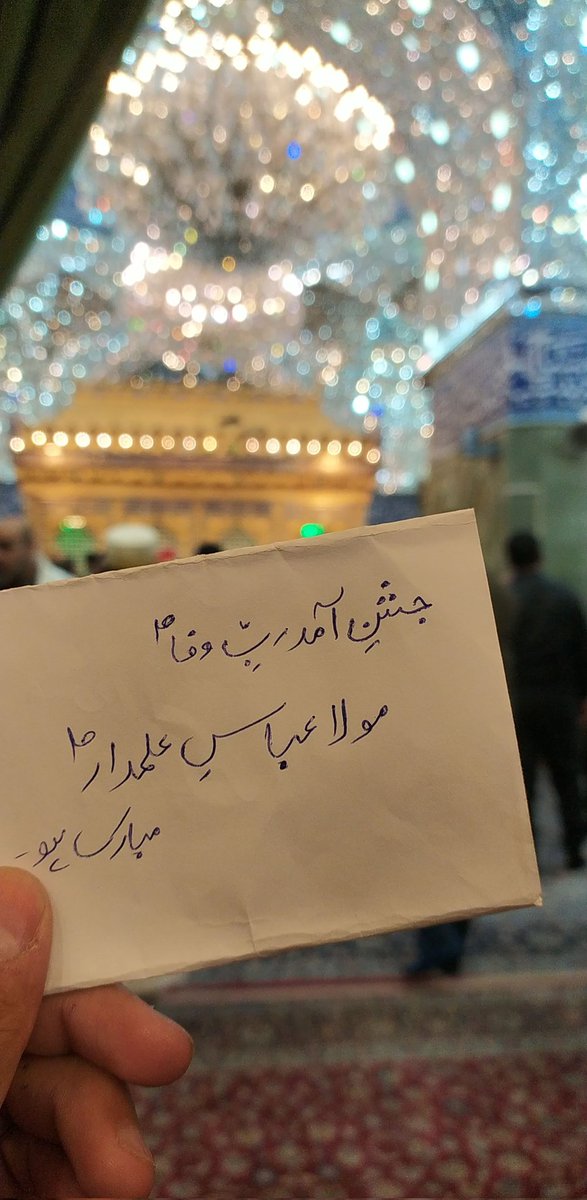 جشنِ آمد ربِّ وفاؑ
مولا عباسِ علمدارؑ
مبارک ہو۔